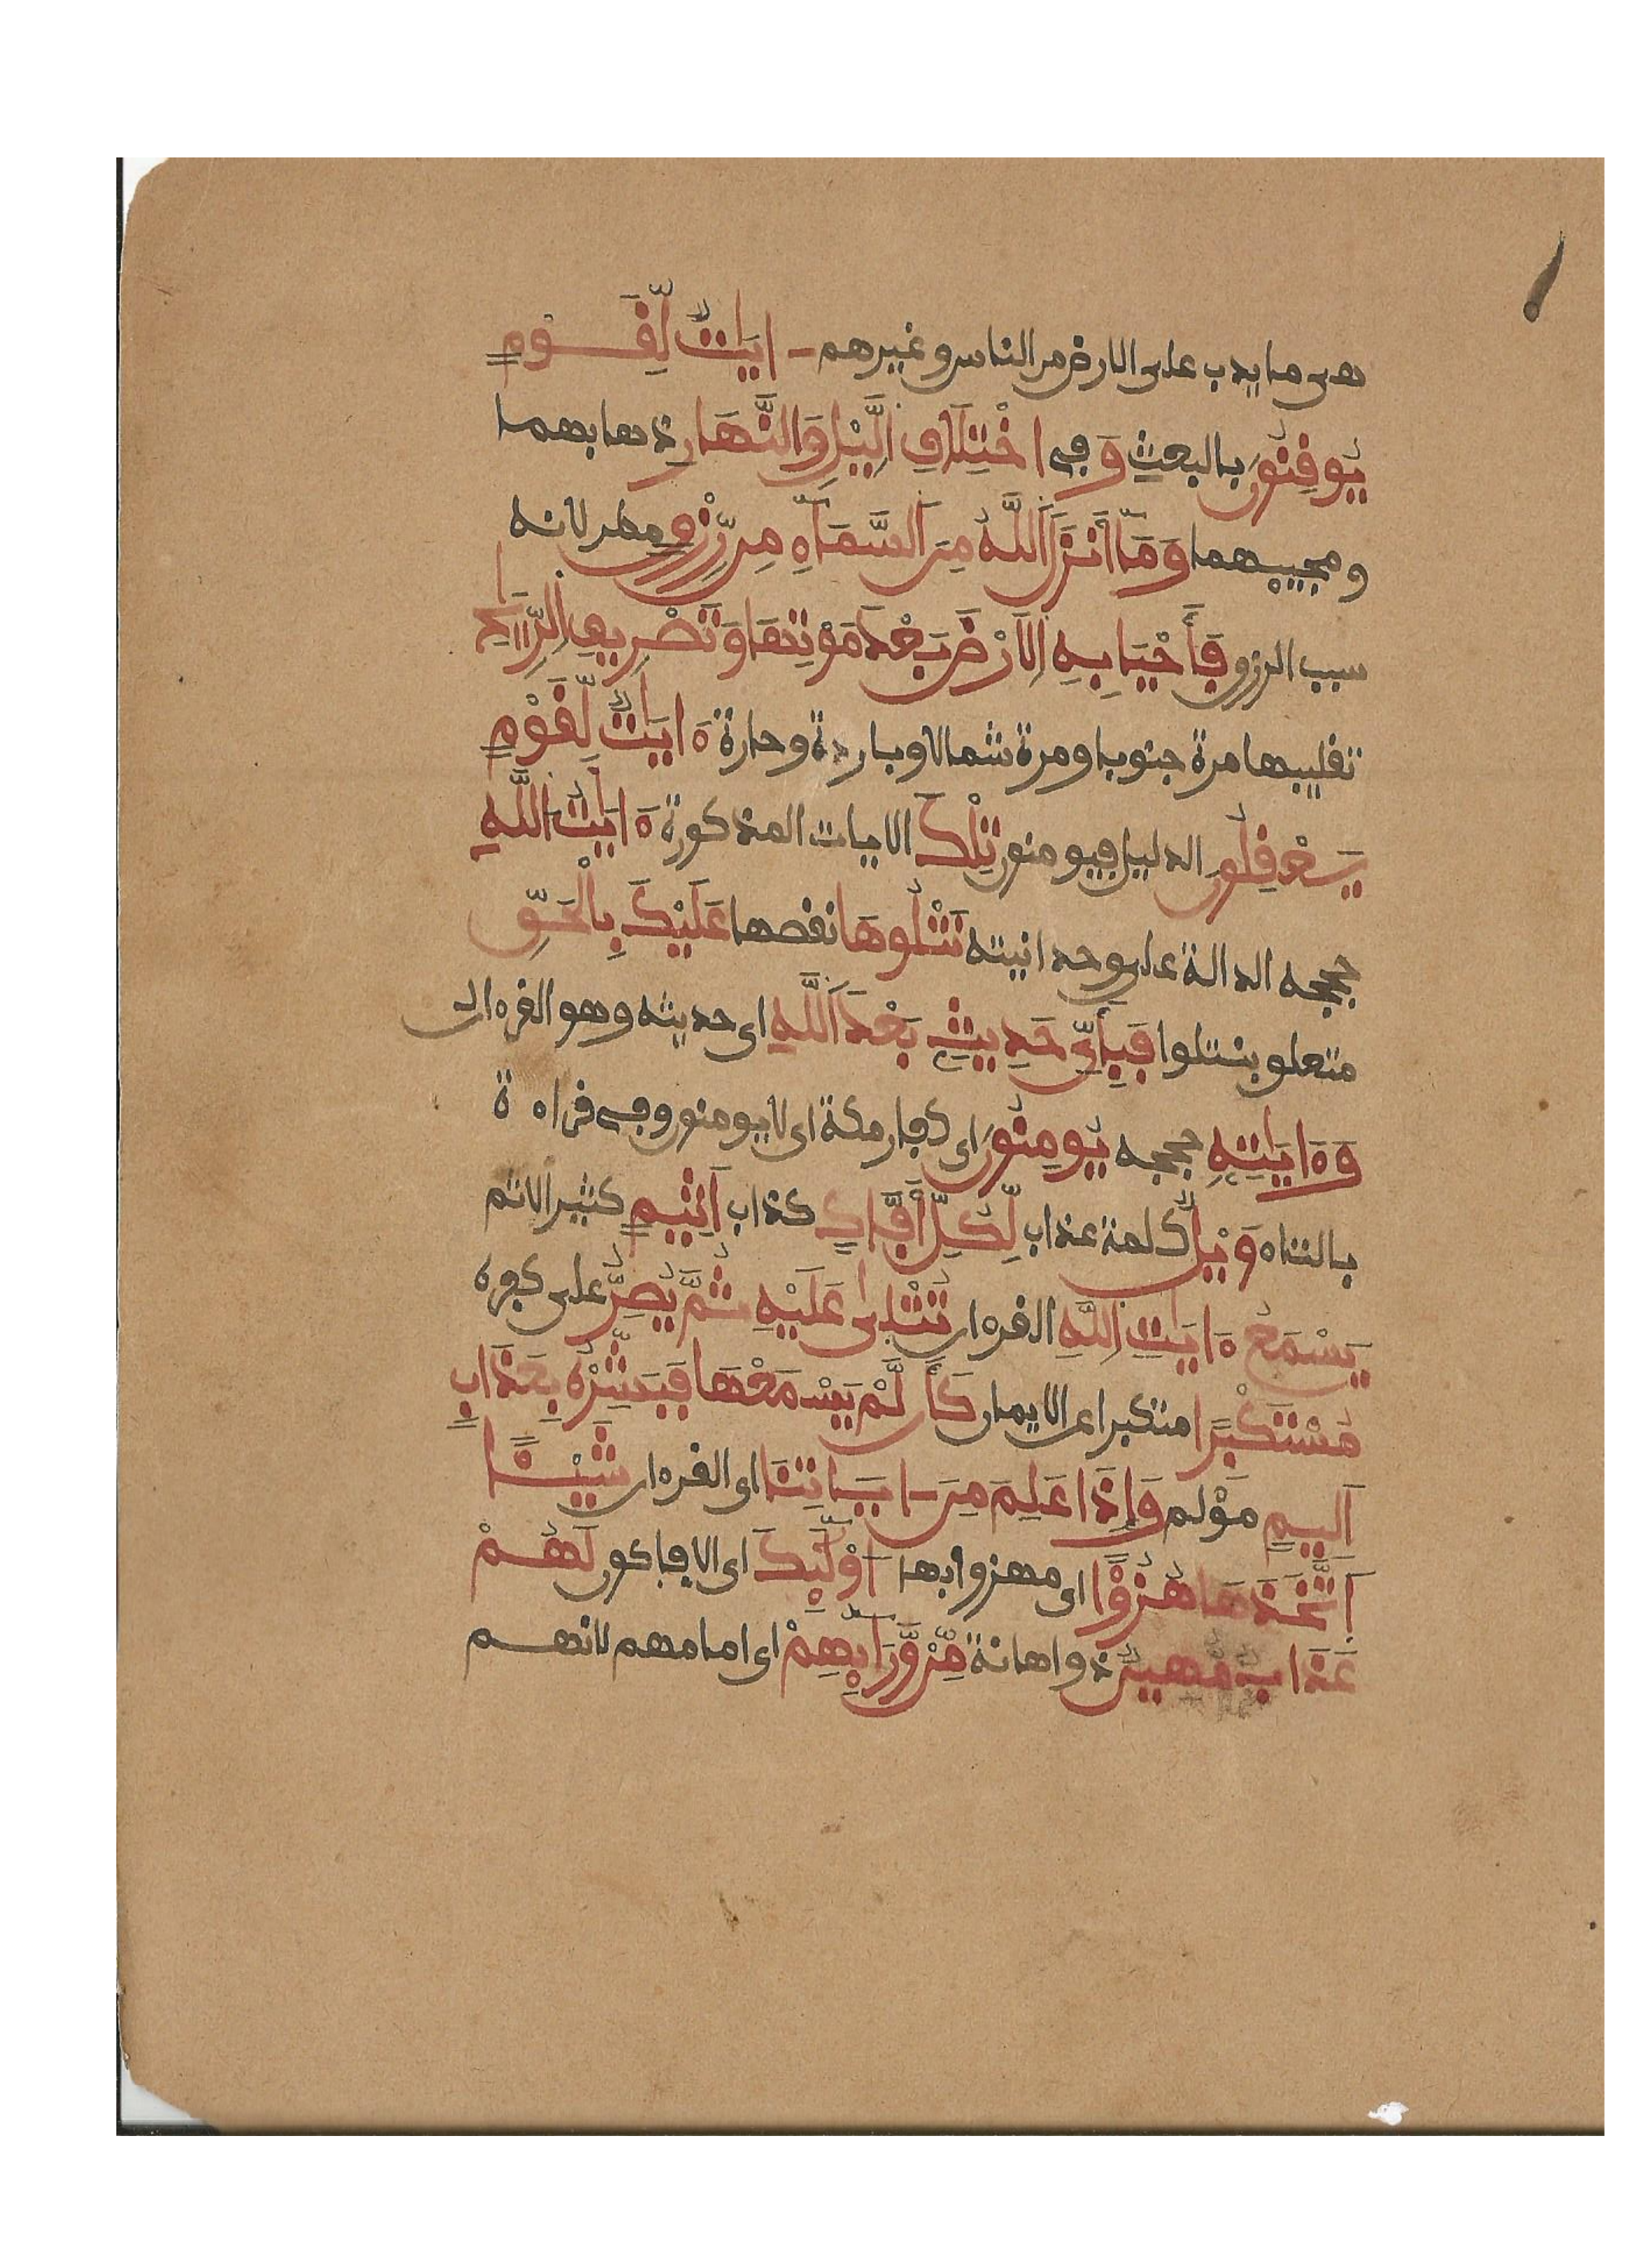 هى ما يدب على الارض من الناس وغيرهم ـ ايَٰتٌ لِّقَوْمٍ
يُوقِنُونَ بالبعث وَفى اخْتِلَافِ الَّيْلِ وَالنَّهَارِ ذهابهما
ومجيىهما وَمَآ أَنزَلَ اَللَّهُ مِنَ اَلسَّمَآءِ مِن رِّزْقٍ مطر لانه
سبب الرزق فَأَحْيَا بِهِ اِلَارْضَ بَعْدَ مَوْتِهَا وَتَصْرِيفِ اِلرِّيَٰحِ
تقليبها مرة جنوبا ومرة شمالا وباردة وحارة ءَايَٰتٌ لِّقَوْمٍ
يَعْقِلُونَ الدليل فيومنون تِلْكَ الايات المذكورة ءَايَٰتُ اَللَّهِ
حججه الدالة على وحدانيته نَتْلُوهَا نقصها عَلَيْكَ بِالْحَقِّ
متعلق بنتلوا فَبِأَيِّ حَدِيثٍ بَعْدَ اَللَّهِ اى حديثه وهو القرءان
وَءَايَٰتِهِ حججه يُومِنُونَ اى كفار مكة اى لا يومنون وفى قراءة
بالتاء وَيْلٌ كلمة عذاب لِّكُلِّ أَفَّاكٍ كذاب اَثِيمٍ كثير الاثم
يَسْمَعُ ءَايَٰتِ اِللَّهِ القرءان تُتْلَىٰ عَلَيْهِ ثُمَّ يُصِرُّ على كفره
مُسْتَكْبِرًا متكبرا عن الايمان كَأَن لَّمْ يَسْمَعْهَا فَبَشِّرْهُ بِعَذَابٍ
اَلِيمٍ مؤلم وَإِذَا عَلِمَ مِنَ ـ ايَاتِنَا اى القرءان شَيْـًٔا
اَتَّخَذَهَا هُزُؤًا اى مهزوا بها أُوْلَٰٓئِكَ اى الافاكون لَهُمْ
عَذَابٌ مُّهِينٌ ذو اهانة مِّنْ وَّرَآئِهِمْ اى امامهم لانهم